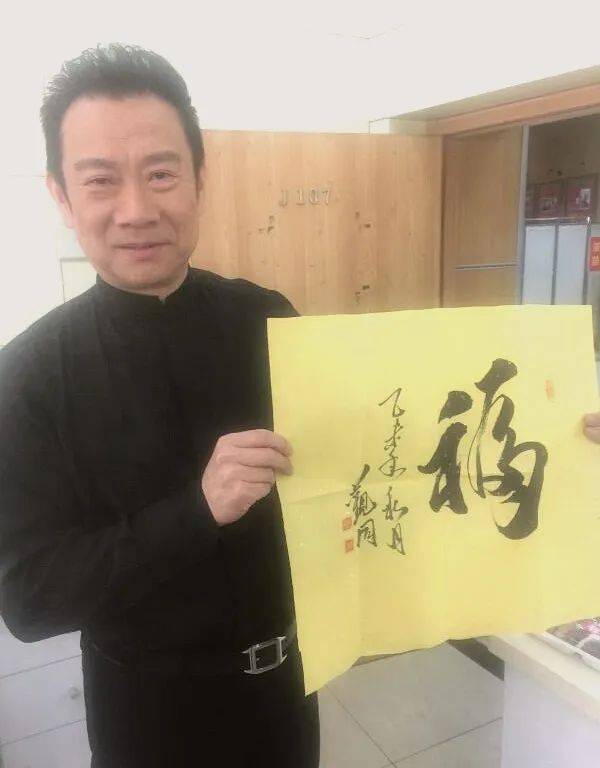 J107
福
乙未年
秋月
觀同